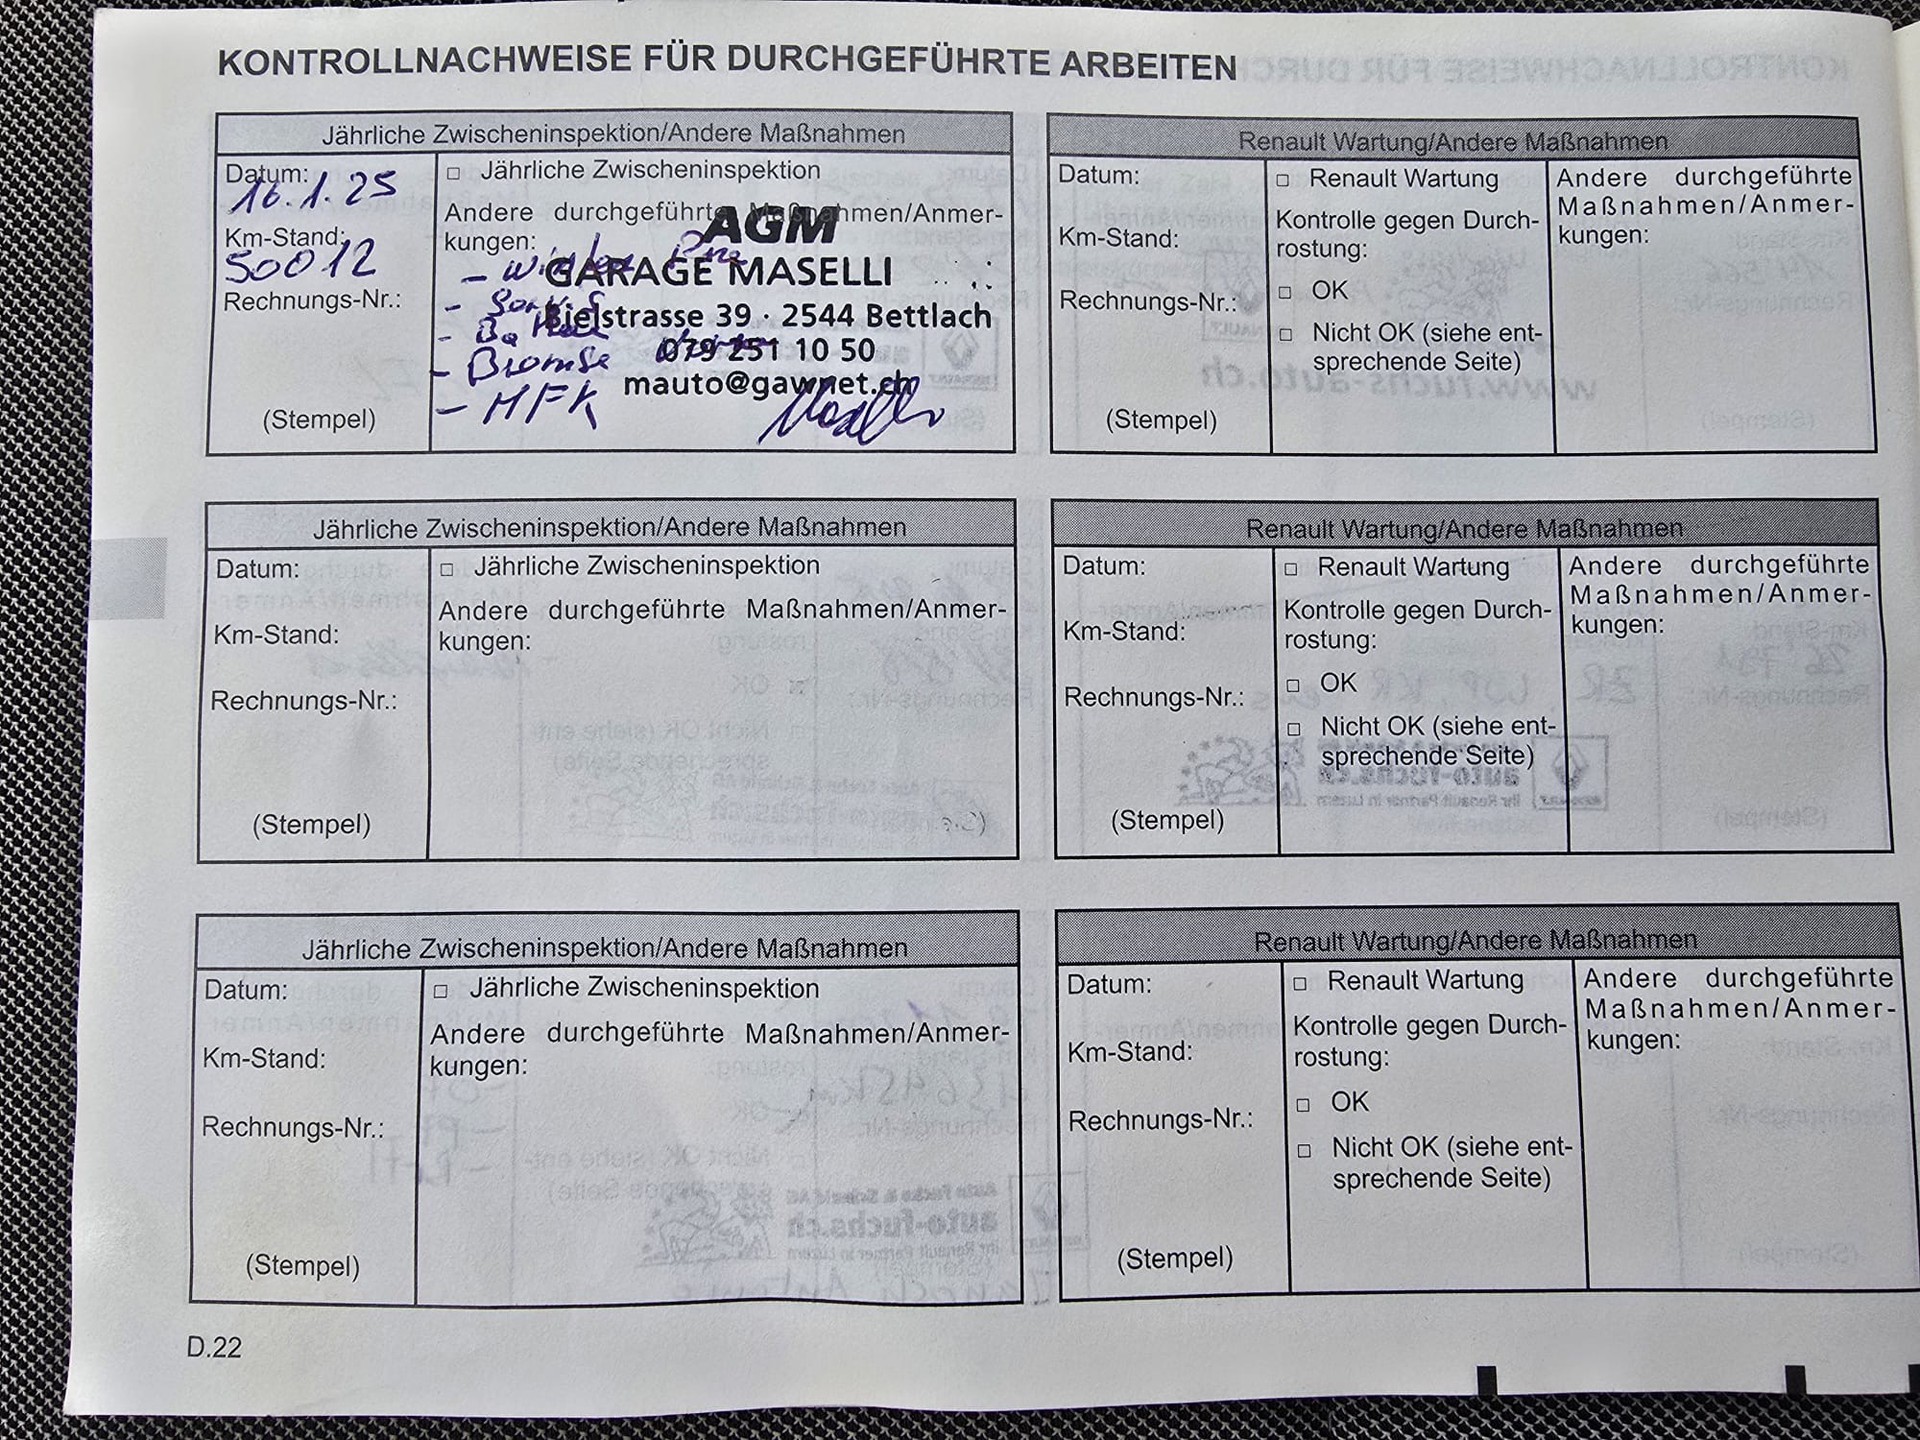 KONTROLLNACHWEISE FÜR DURCHGEFÜHRTE ARBEITEN
Jährliche Zwischeninspektion/Andere Maßnahmen
Datum:
16.1.25
Km-Stand:
50012
Rechnungs-Nr.:
(Stempel)
□ Jährliche Zwischeninspektion
Andere durchgeführte Maßnahmen/Anmer-
kungen:
AGM
GARAGE MASELLI
Bielstrasse 39 · 2544 Bettlach
079 251 10 50
mauto@gawnet.ch
-
-
-
- Bremse
- MFK
Renault Wartung/Andere Maßnahmen
Datum:
Km-Stand:
Rechnungs-Nr.:
(Stempel)
□ Renault Wartung
Kontrolle gegen Durch-
rostung:
□ OK
□ Nicht OK (siehe ent-
sprechende Seite)
Andere durchgeführte
Maßnahmen/Anmer-
kungen:
Jährliche Zwischeninspektion/Andere Maßnahmen
Datum:
Km-Stand:
Rechnungs-Nr.:
(Stempel)
□ Jährliche Zwischeninspektion
Andere durchgeführte Maßnahmen/Anmer-
kungen:
Renault Wartung/Andere Maßnahmen
Datum:
Km-Stand:
Rechnungs-Nr.:
(Stempel)
□ Renault Wartung
Kontrolle gegen Durch-
rostung:
□ OK
□ Nicht OK (siehe ent-
sprechende Seite)
Andere durchgeführte
Maßnahmen/Anmer-
kungen:
Jährliche Zwischeninspektion/Andere Maßnahmen
Datum:
Km-Stand:
Rechnungs-Nr.:
(Stempel)
□ Jährliche Zwischeninspektion
Andere durchgeführte Maßnahmen/Anmer-
kungen:
Renault Wartung/Andere Maßnahmen
Datum:
Km-Stand:
Rechnungs-Nr.:
(Stempel)
□ Renault Wartung
Kontrolle gegen Durch-
rostung:
□ OK
□ Nicht OK (siehe ent-
sprechende Seite)
Andere durchgeführte
Maßnahmen/Anmer-
kungen:
D.22